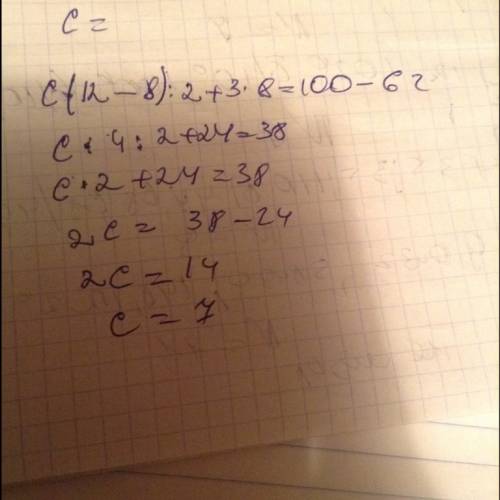 c =
c·(12 - 8) : 2 + 3 · 8 = 100 - 62
c · 4 : 2 + 24 = 38
c · 2 + 24 = 38
2c = 38 - 24
2c = 14
c = 7